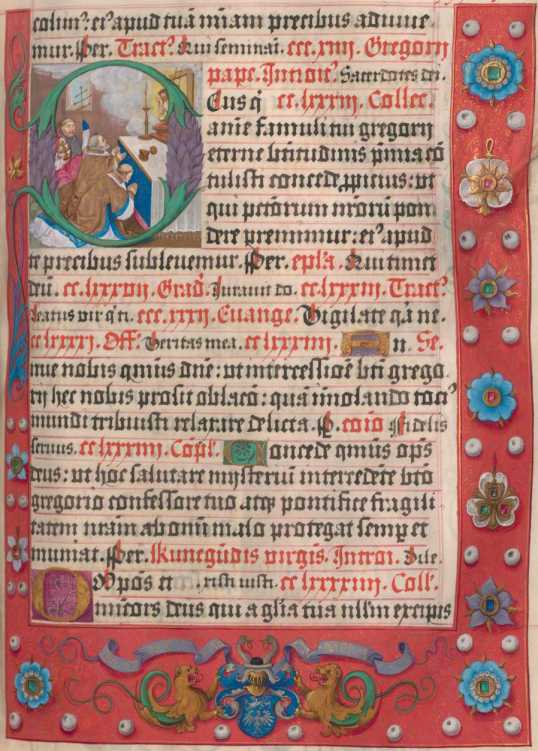 colim⁹. ei⁹ apud tuā mīam precibus adiuue
mur. Per. Tract⁹. Qui seminant. ccc.xiiij. Gregorij
pape. Introit⁹. Sacerdotes dei.
cc.lxxxiij. Collec.
anie famuli tui gregorij
eterne btitudinis p̄mia cō
tulisti concede ꝓpicius: vt
qui pctōrum nr̄orum pon
dere premimur: ei⁹ apud
te precibus subleuemur. Per. ep̄la. Qui timet
deū. cc.lxxxvij. Grad. Iurauit dō. cc.lxxxiij. Tract⁹
Beatus vir q̄ ti. ccc.xxxij. Euange. Vigilate q̄a ne.
cc.lxxxj. Off. Veritas mea. cc.lxxxiiij. An. Se.
nue nobis q̄mus dn̄e: vt intercessiōe btī grego
rij hec nobis prosit oblacō: quā īmolando toci⁹
mundi tribuisti relaxare delicta. P. cōīo Fidelis
seruus. cc.lxxxiiij. Cōpl. Concede q̄mus op̄s
deus: vt hoc salutare misteriū intercedēte btō
gregorio confessore tuo atq pontifice fragili
tatem nr̄am ab omī malo protegat semp et
muniat. Per. Kunegūdis virgīs. Introi. Dile
cc.lxxxxiiij. Coll.
mīcors deus qui a glīa tua nllm̄ excipis